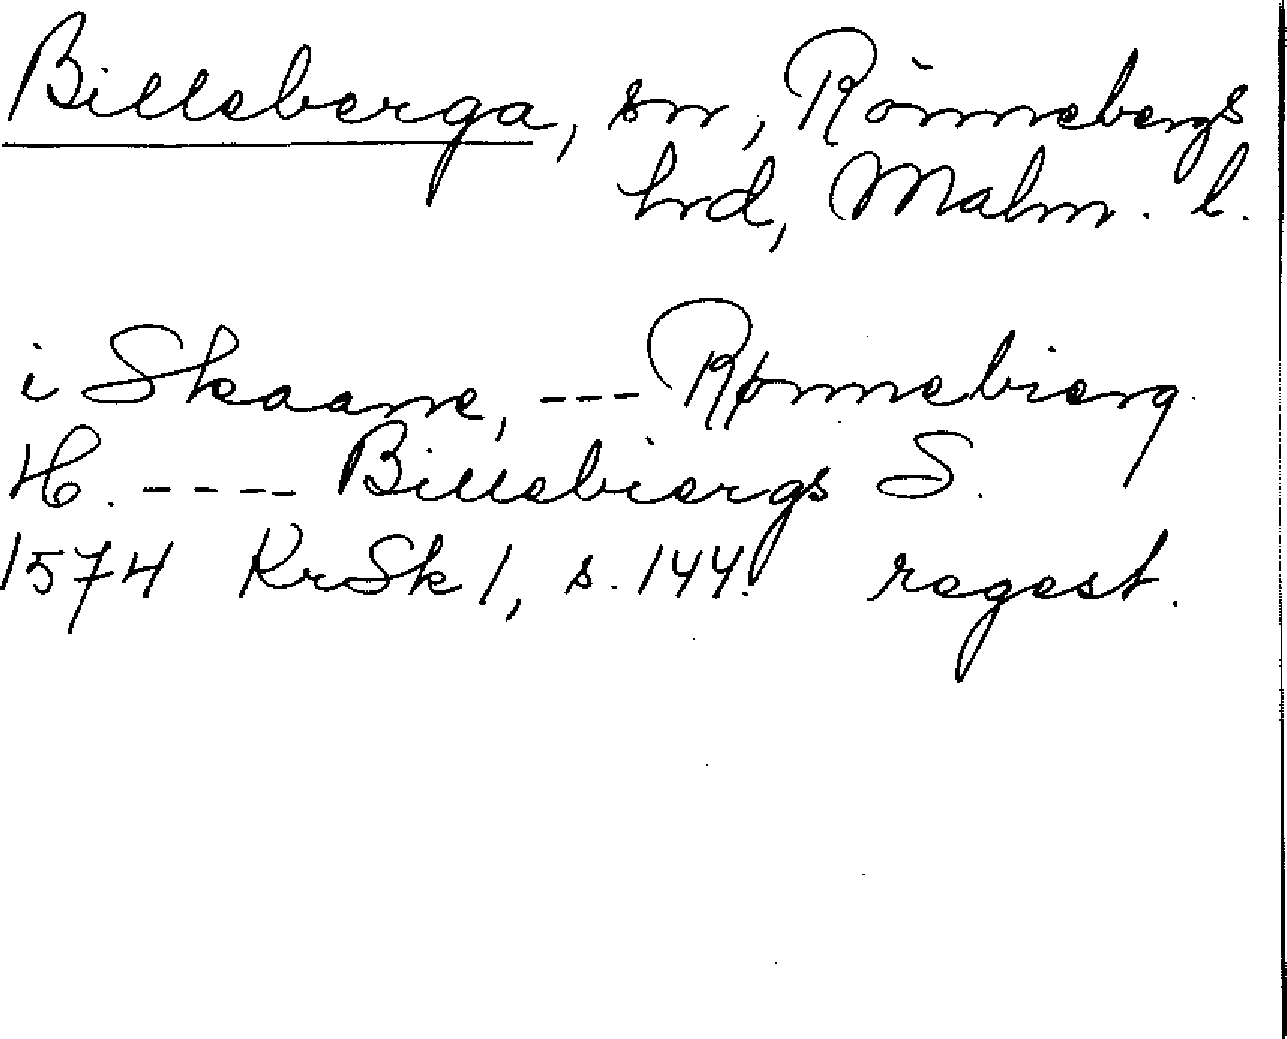 Billeberga, sn, Rönnebergs
hrd, Malm. l.
i Skaane, --- Rønnebierg
H. ---- Billebiergs S.
1574 KrSk 1, s. 144. regest.